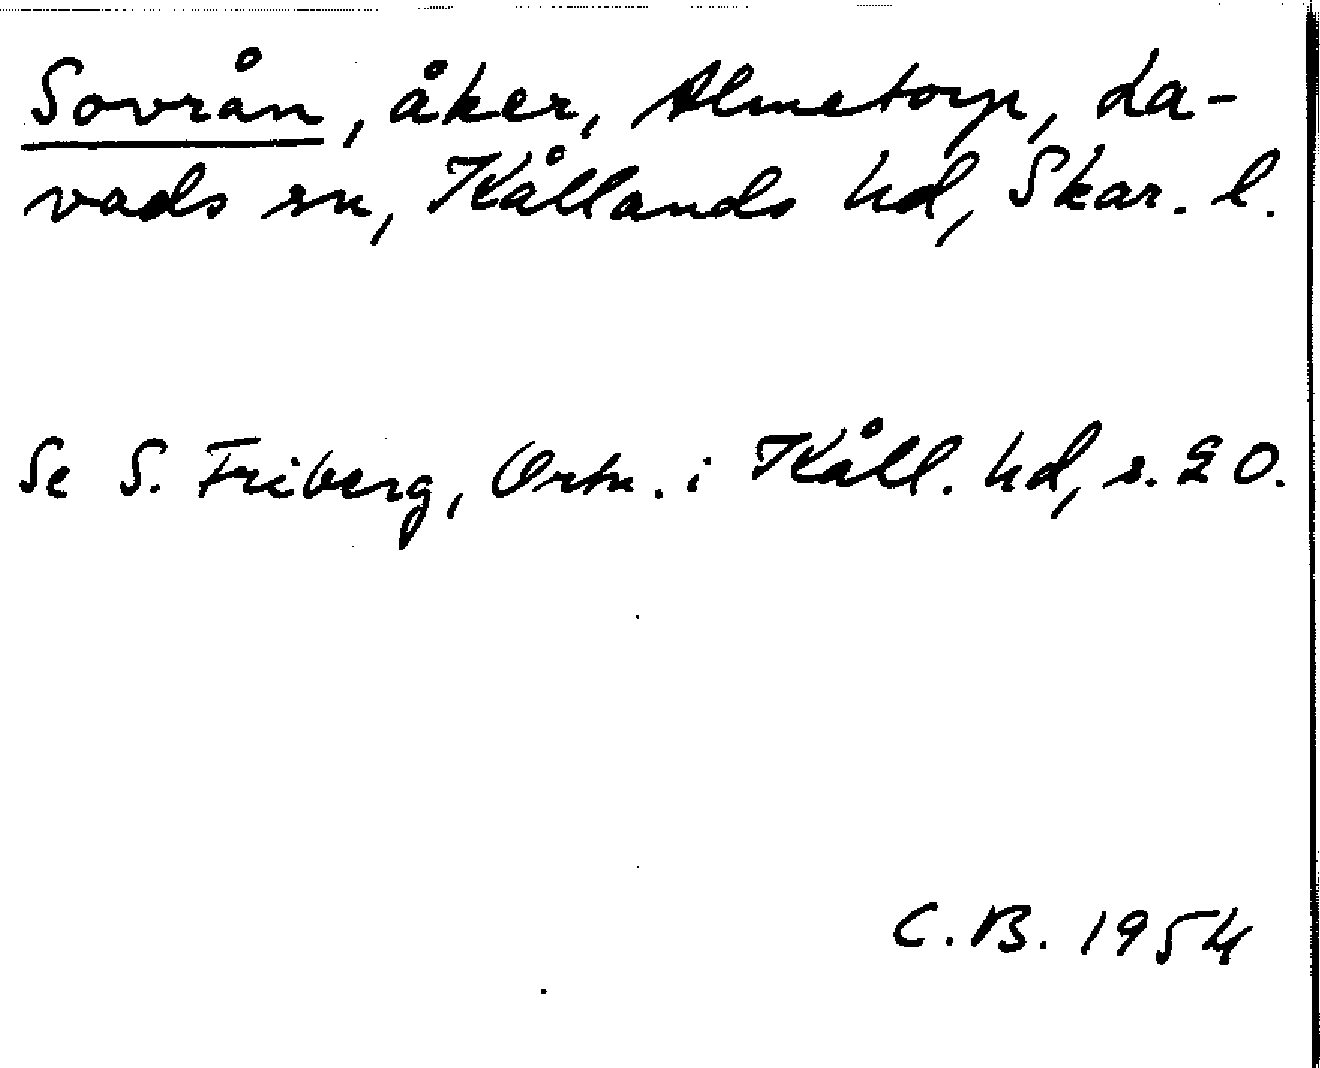 Sovrån, åker, Almetorp, La-
vads sn, Kållands hd, Skar. l.
Se S. Friberg, Ortn. i Kåll. hd, s. 20.
C.B. 1954